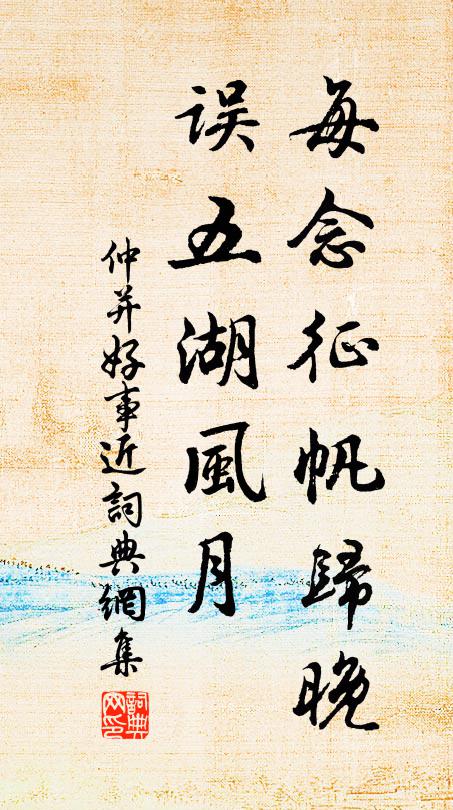 每念征帆歸晚
误五湖風月
仲并好事近詞典網集
詞典网印